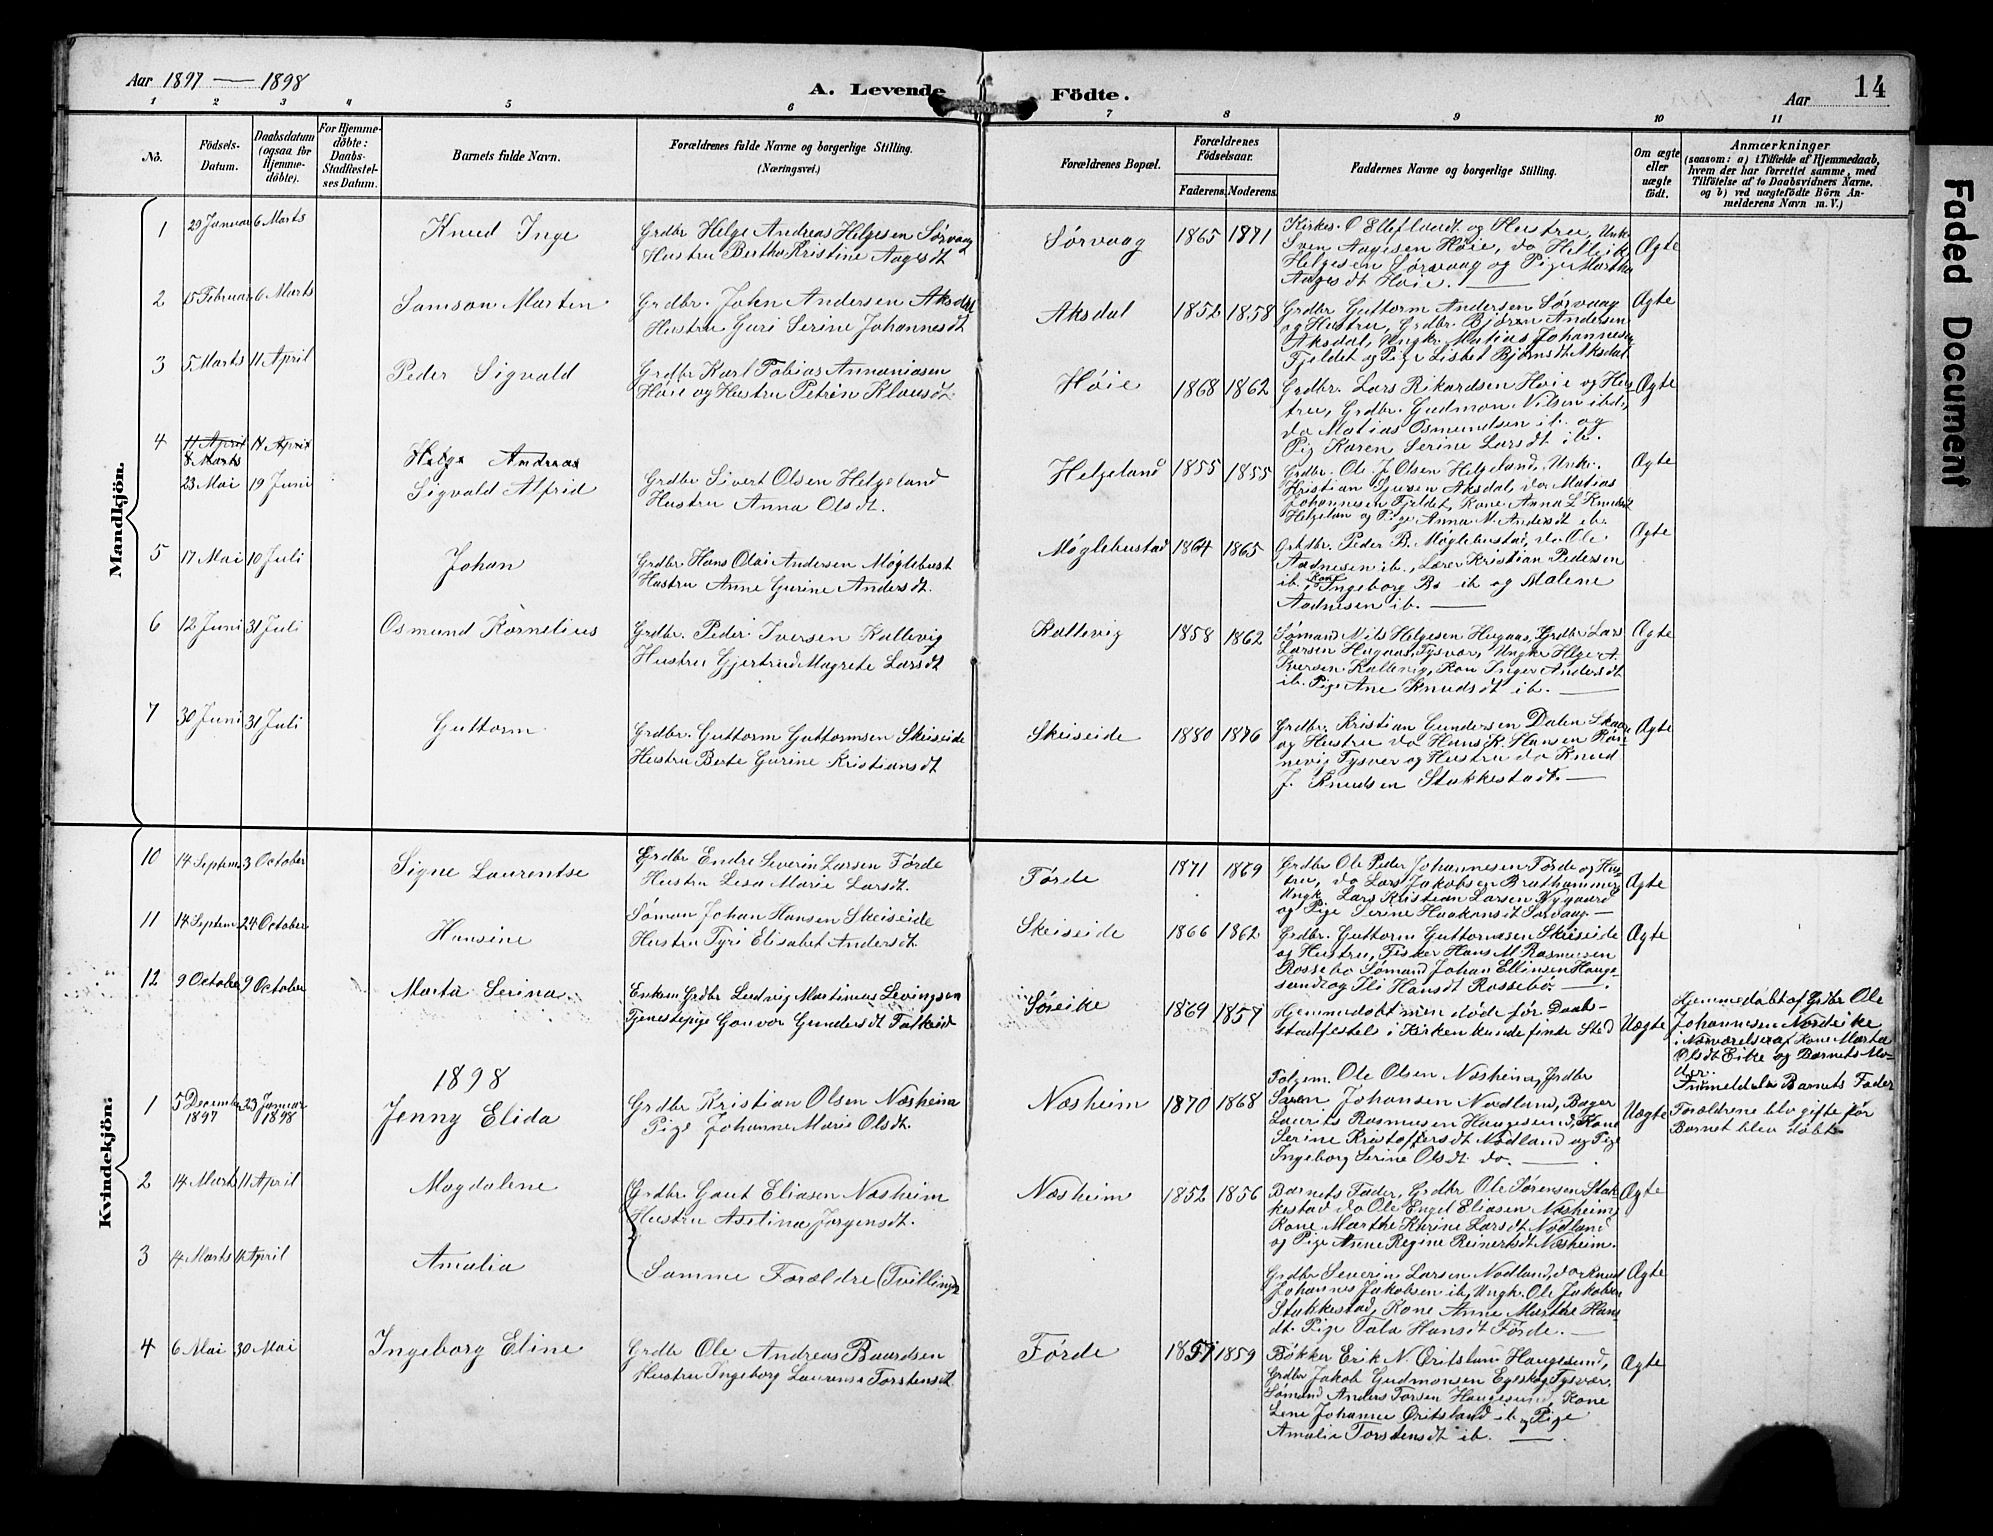 Aar 1897 — 1898
A. Levende Födte.
Aar
14
Faded Document
1 2 3 4 5 6 7 8 9 10 11
No.
Födsels-Datum.
Daabsdatum (ogsaa for Hjemme-döbte).
For Hjemme-döbte: Daabs-Stadfæstel-ses Datum.
Barnets fulde Navn.
Forældrenes fulde Navne og borgerlige Stilling.
(Næringsvei.)
Forældrenes Bopæl.
Forældrenes Födselsaar.
Faderens. Moderens.
Faddernes Navne og borgerlige Stilling.
Om ægte eller uægte födt.
Anmærkninger
(saasom: a) i Tilfælde af Hjemmedaab,
hvem der har forrettet samme, med
Tilföielse af to Daabsvidners Navne.
og b) ved uægtefödte Börn An-
melderens Navn m. V.)
Mandkjön.
1 29 Januar 6 Marts
Knud Inge
Grdbr Helge Andreas Helgesen Sørvaag
Hustru Bertha Kristine Aagesdt
Sørvaag 1865 1871
Kirkes. O Elleflandt og Hustru, Unk.
Sven Aagesen Høie, do Hellik
Helgesen Sørvaag og Pige Martha
Aagesdt Høie.
Ægte
2 15 Februar 6 Marts
Samson Marten
Grdbr. John Andersen Aksdal
Hustru Guri Serine Johannesdt
Aksdal 1852 1858
Grdbr Guttorm Andersen Sørvaag
og Hustru, Grdbr. Bjøren Andersen
Aksdal, Ungkr. Matias Johannesen
Fjeldet og Pige Lisbet Bjørnsdt Aksdal
Ægte
3 5 Marts 11 April
Peder Sigvald
Grdbr Karl Tobias Annaniasen
Høie og Hustru Petrin Klausdt.
Høie 1868 1862
Grdbr. Lars Rikardsen Høie og Hus-
tru, Grdbr. Gudmon Nilsen ibd,
do Matias Osmundsen ib. og
Pig Karen Serine Larsdt ib.
Ægte
4 11 April 11 April
8 Marts
Helge Andreas
23 Mai 19 Juni
Sigvald Alfrid
Grdbr Sivert Olsen Helgeland
Hustru Anna Olsdt.
Helgeland 1855 1855
Grdbr. Ole J. Olsen Helgeland, Unkr.
Kristian Sjursen Aksdal, do Matias
Johannesen Fjeldet, Kone Anna L Knudsdt
Helgelan og Pige Anna M. Andersdt ib.
Ægte
5 17 Mai 10 Juli
Johan
Grdbr Hans Olai Andersen Møglebust
Hustru Anne Gurine Andersdt.
Møglebustad 1864 1865
Grdbr. Peder B. Møglebustad, do Ole
Aadnesen ib., Lærer Kristian Pedersen
ib. Kone Ingeborg Bs ib og Malene
Aadnesen ib.
Ægte
6 12 Juni 31 Juli
Osmund Kornelius
Grdbr. Peder Iversen Kallevig
Hustru Gjertrud Magrete Larsdt
Kallevig 1858 1862
Sømand Nils Helgesen Hugaas, Grdbr Lars
Larsen Hugaas Tysvær, Ungkr Helge A.
Iversen Kallevig, Kon Inger Andersdt
ib. Pige Ane Knudsdt ib.
Ægte
7 30 Juni 31 Juli
Guttorm
Grdbr. Guttorm Guttormsen Skeiseide
Hustru Berte Gurine Kristiansdt
Skeiseide 1880 1876
Grdbr. Kristian Gundersen Dalen Skaare
og Hustru do Hans K. Hansen Røn-
nevig Tysver og Hustru do Knud
J. Knudsen Stakkestadt.
Ægte
Kvindekjön:
10 14 Septem 3 October
Signe Laurentse
Grdbr Endre Severin Larsen Førde
Hustru Lisa Marie Larsdt.
Førde 1871 1869
Grdbr Ole Peder Johannesen Førde og Hus-
tru, do Lars Jakobsen Brathammer,
Ungk. Lars Kristian Larsen Nygaard
og Pige Serine Haakonsdt Sørvaag
Ægte
11 14 Septem 24 October
Hansine
Søman Johan Hansen Skeiseide
Hustru Tyri Elisabet Andersdt.
Skeiseide 1866 1862
Grdbr. Guttorm Guttormsen Skeiseide
og Hustru, Fisker Hans M Rasmusen
Rossebø Sømand Johan Ellinsen Hauge-
sund og Ili Hansdt Rossebø.
Ægte
12 9 October 9 October
Marta Serina
Enkem Grdbr Ludvig Martinus Levingsen
Tjenestepige Gonvor Gundersdt Falkeid
Søreike 1869 1857
Hjemmedøbt men døde før Daab-
stadfestel i Kirken kunde finde Sted
Uægte
Hjemmedøbt af Grdbr Ole
Johannesen Nordeike
i Nærværelse af Kone Marta
Olsdt Eike og Barnets Mo-
der.
1898
1 5 December 1897 23 Januar 1898
Jenny Elida
Grdbr Kristian Olsen Næsheim
Pige Johanne Marie Olsdt.
Næsheim 1870 1868
Folgem. Ole Olsen Næsheim, Grdbr
Søren Johansen Nodland, Bager
Laurits Rasmusen Haugesund, Kone
Serine Kristoffersdt Nodland og Pige
Ingeborg Serine Olsdt do.
Uægte
Anmeldela Barnets Fader
Forældrene blev gifte før
Barnet blev døbt
2 14 Marts 11 April
Magdalene
Grdbr. Gaut Eliasen Næsheim
Hustru Aselina Jørgensdt.
Næsheim 1852 1856
Barnets Fader, Grdbr Ole Sørensen Stak-
kestad do Ole Engel Eliasen Næsheim,
Kone Marthe Karine Larsdt Nodland
og Pige Anne Regine Reinertsdt Næsheim.
Ægte
3 14 Marts 11 April
Amalia
Samme Forældre (Tvilling)
Grdbr Severin Larsen Nodland, do Knud
Johannes Jakobsen ib, Ungk. Ole Jakobsen
Stakkestad, Kone Anne Marthe Hans
dt. Pige Tala Hansdt Førde.
Ægte
4 6 Mai 30 Mai
Ingeborg Eline
Grdbr Ole Andreas Baardsen
Hustru Ingeborg Laurense Torstensdt.
Førde 1857 1859
Bøkker Erik N. Øritsland Haugesund,
Grdbr Jakob Gudmonsen Egeskog Tysvær,
Sømand Anders Torsen Haugesund, Kone
Lene Johanne Øritsland ib og Pige
Amalia Torstensdt ib.
Ægte